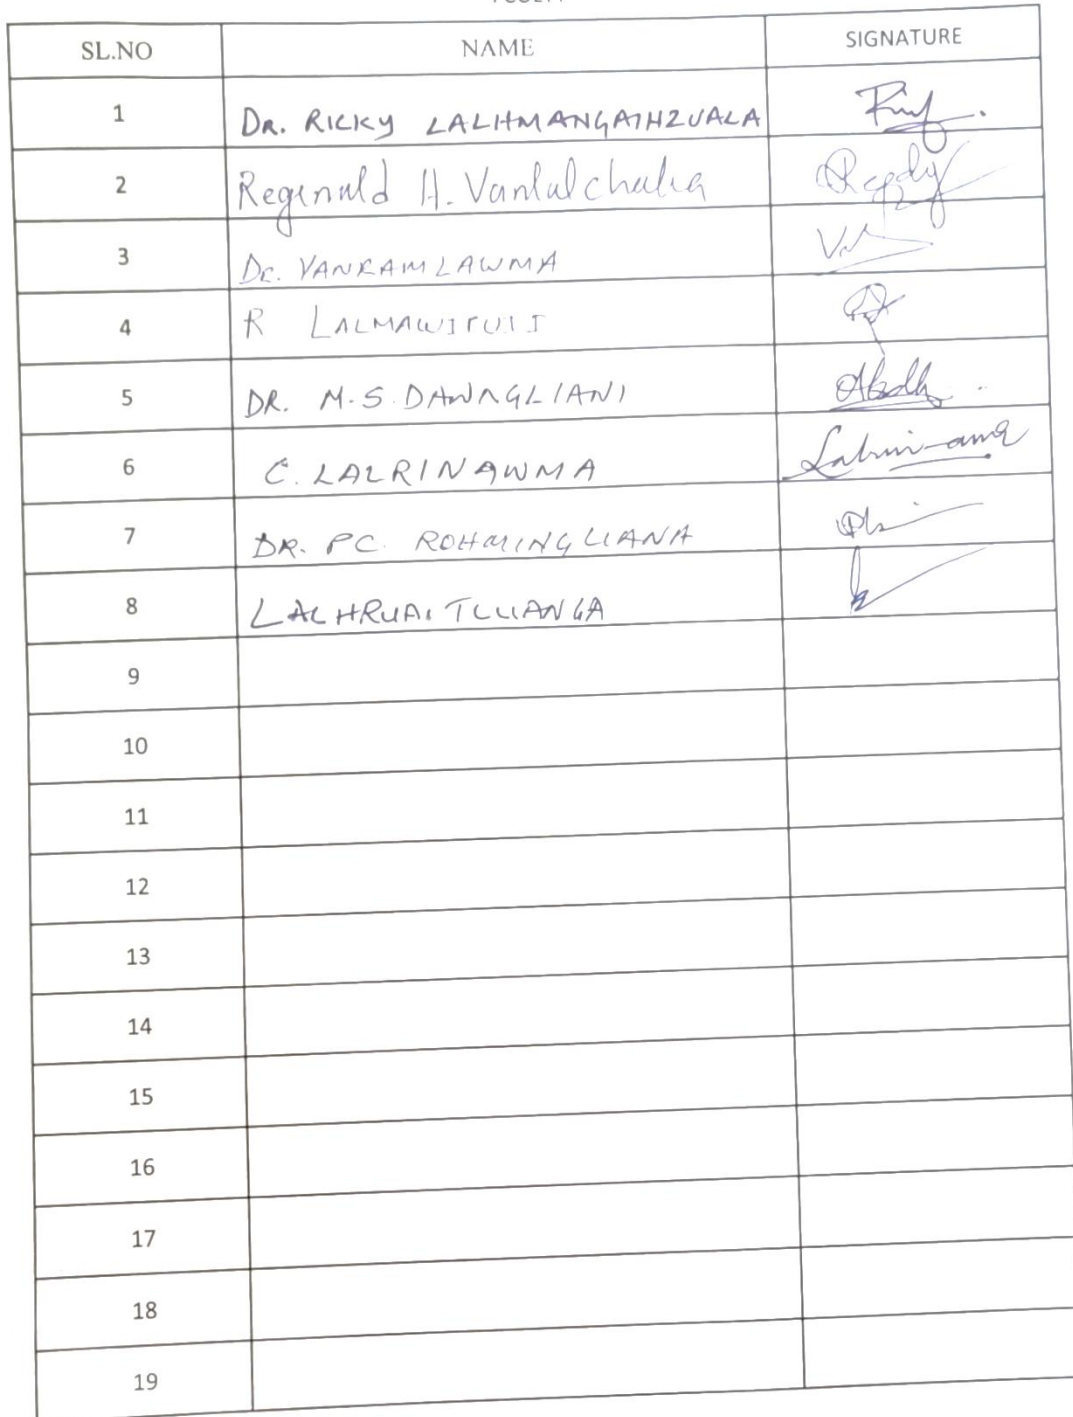 SL.NO NAME SIGNATURE
1 DR. RICKY LALHMANGAIHZUALA
2 Reginald H. Vanlalchaka
3 Dr. VANRAMLAWMA
4 R LALMAWIPUII
5 DR. M.S. DAWNGLIANI
6 C. LALRINAWMA
7 DR. PC. ROHMINGLIANA
8 LALHRUAITLUANGA
9
10
11
12
13
14
15
16
17
18
19